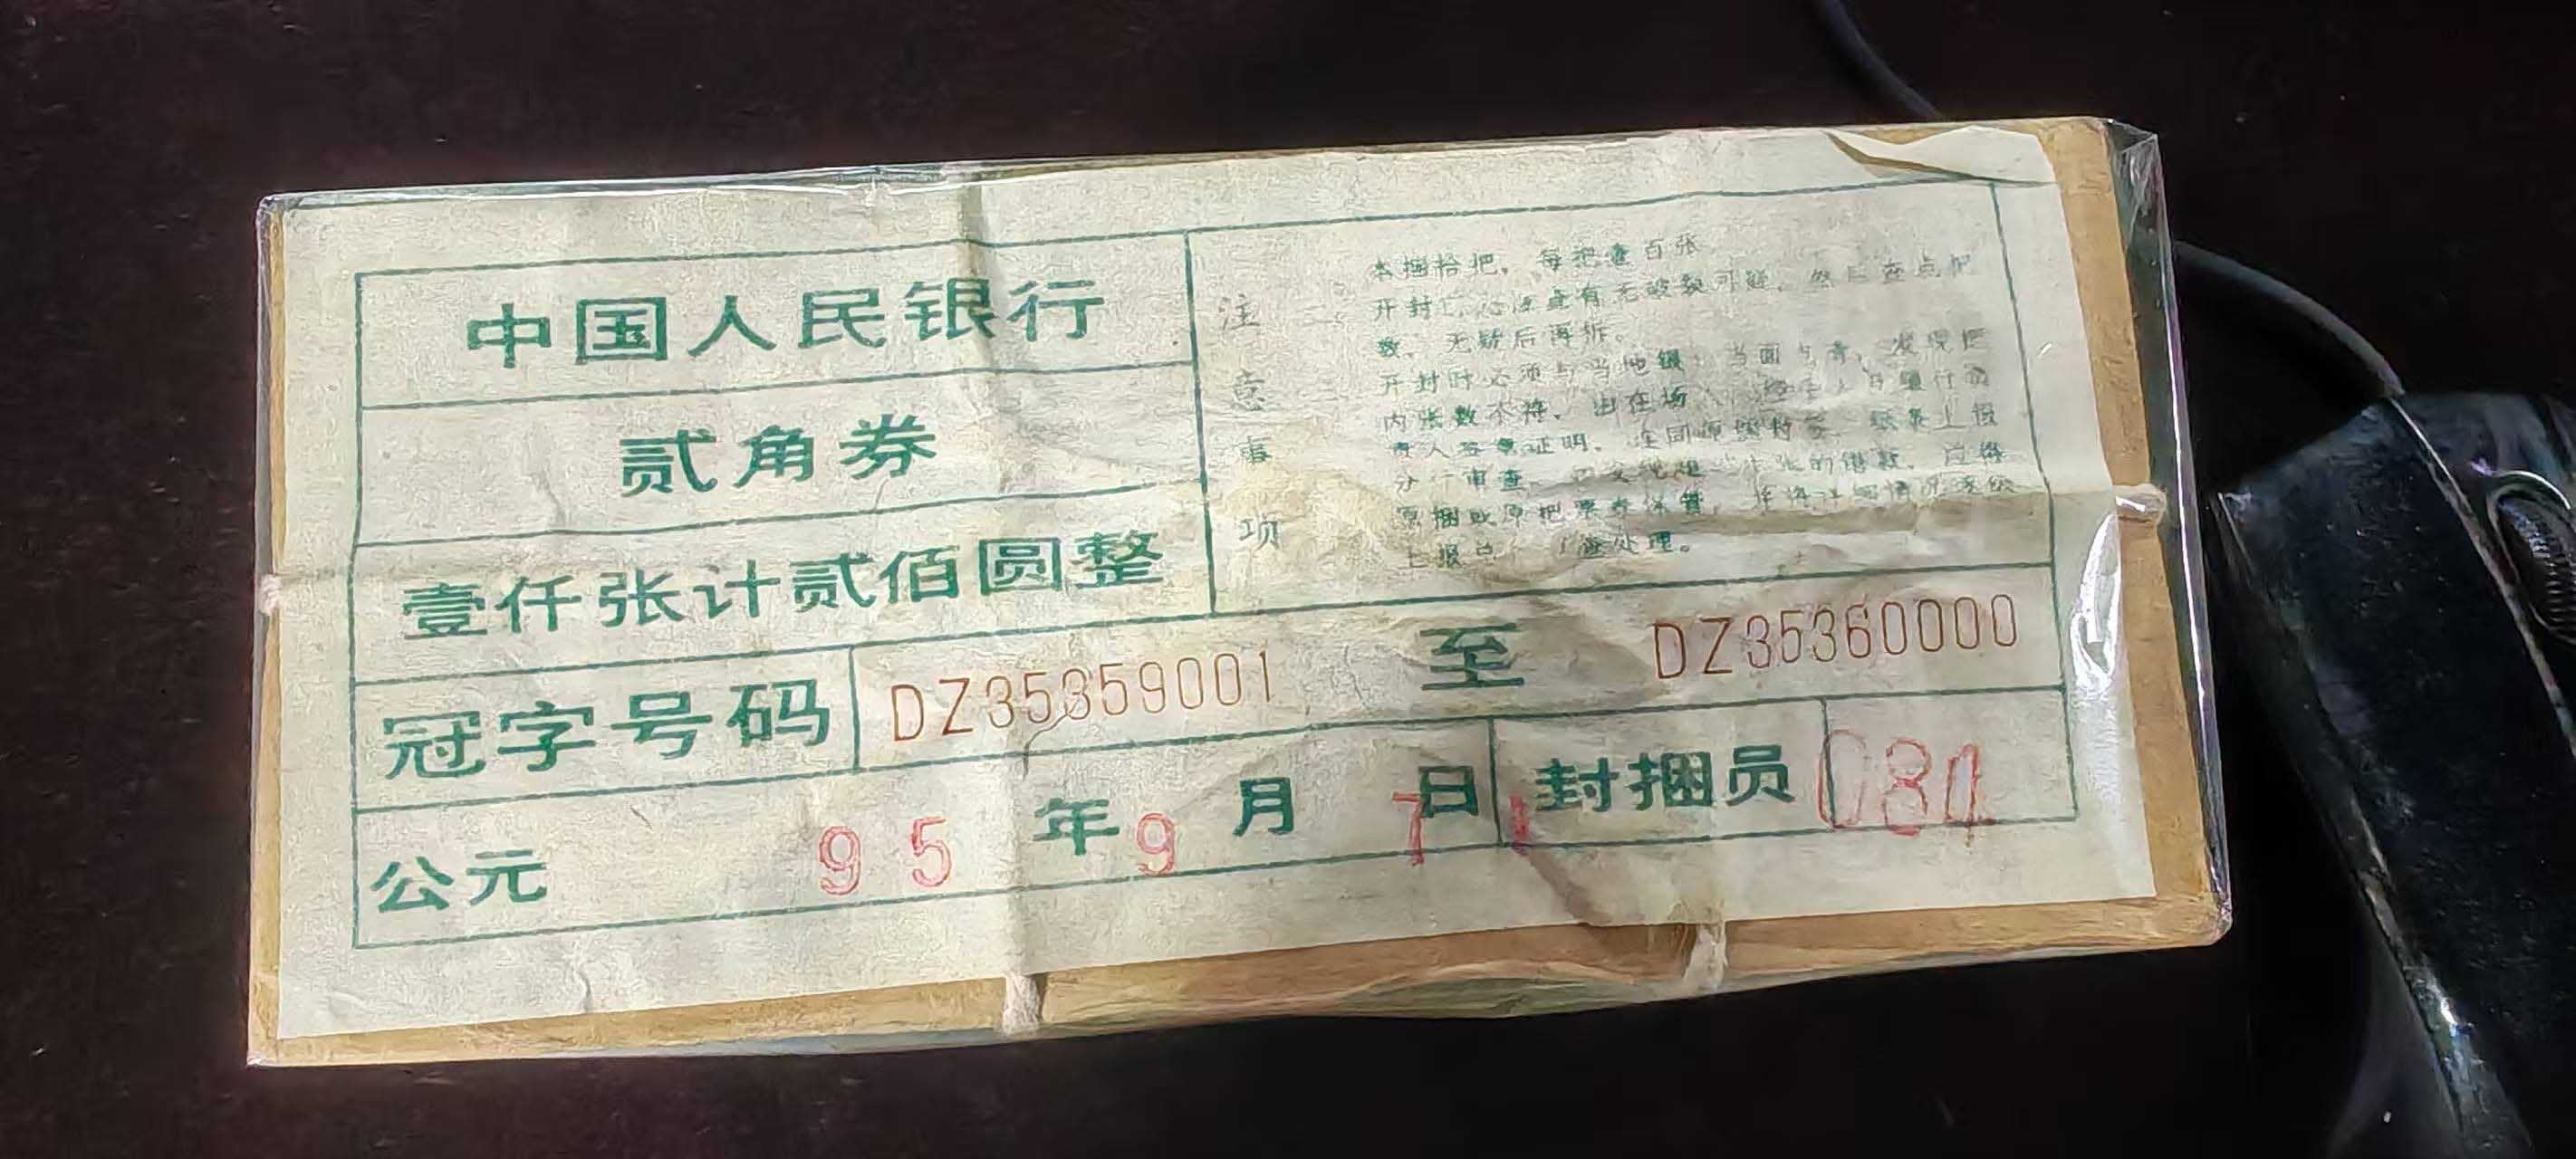 中国人民银行
贰角券
壹仟张计贰佰圆整
注意事项
本捆拾把，每把壹百张
开封 必须查有无破裂可疑，然后在点把
数，无疑后再拆。
开封时必须与当地银 当面 发现把
内张数不符，由在场 银行负
责人签章证明，连同原 封签、纸条上报
分行审查。 张的借款，应将
原捆或原把票券保管，并将详细情况逐级
上报总 处理。
冠字号码 DZ35359001 至 DZ35360000
公元 95 年 9 月 7 日 封捆员 084